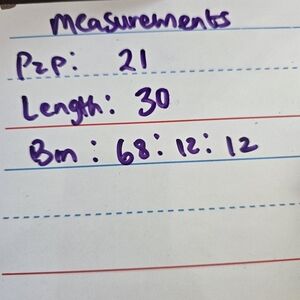 Measurements
P2p: 21
Length: 30
Bm: 68: 12: 12